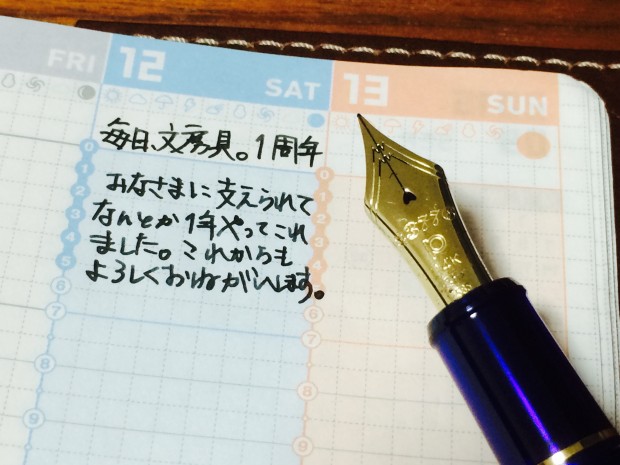 FRI 12 SAT 13 SUN
毎日、文房具。1周年
みなさまに支えられて
なんとか1年やってこれ
ました。これからも
よろしくおねがいします。
0
1
2
3
4
5
6
7
8
9
0
1
2
3
4
5
6
7
8
9
#3776
14K